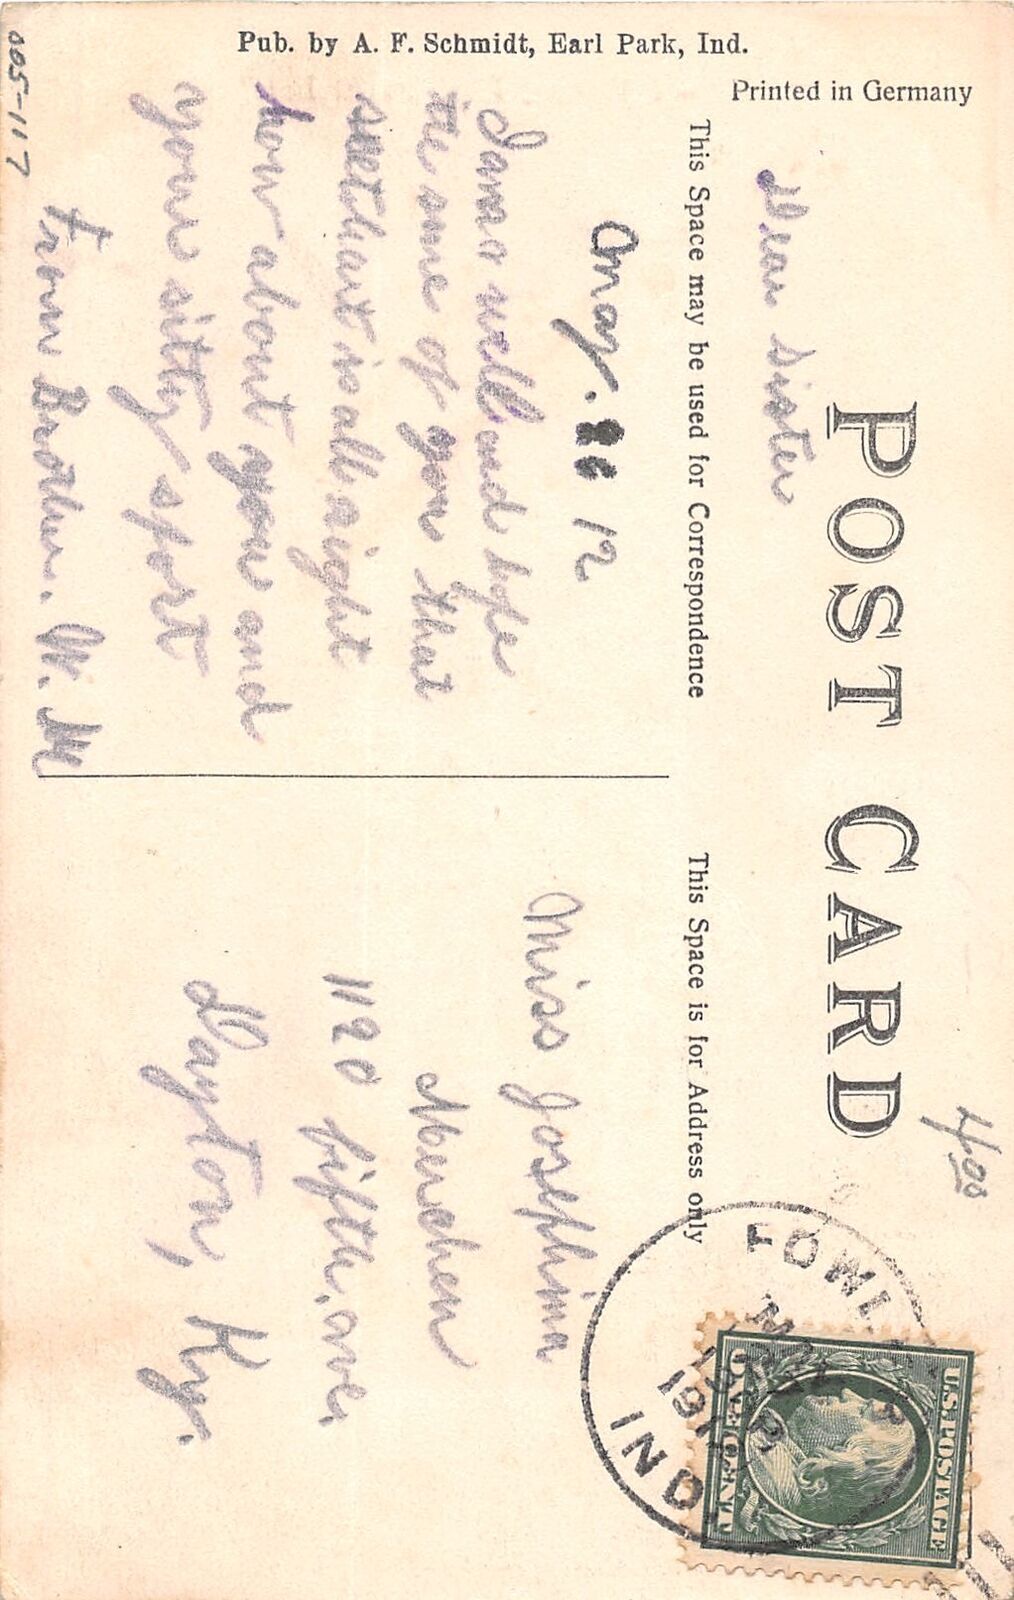 Pub. by A. F. Schmidt, Earl Park, Ind.
Printed in Germany
POST CARD
This Space may be used for Correspondence
This Space is for Address only
Dear Sister
May. 12
I am well and hope
the same of you that
is all right
how about you and
your sitty sport
From Brother. W. M
Miss Josephina
Menchen
1120 fifth. ave.
Dayton, Ky.
FOWL
IND
U.S. POSTAGE
ONE CENT
4.00
005-117